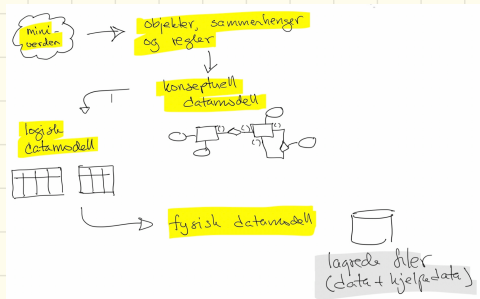 mini-
verden
objekter, sammenhenger
og regler
konseptuell
datamodell
logisk
datamodell
fysisk datamodell
lagrede filer
(data + hjelpedata)